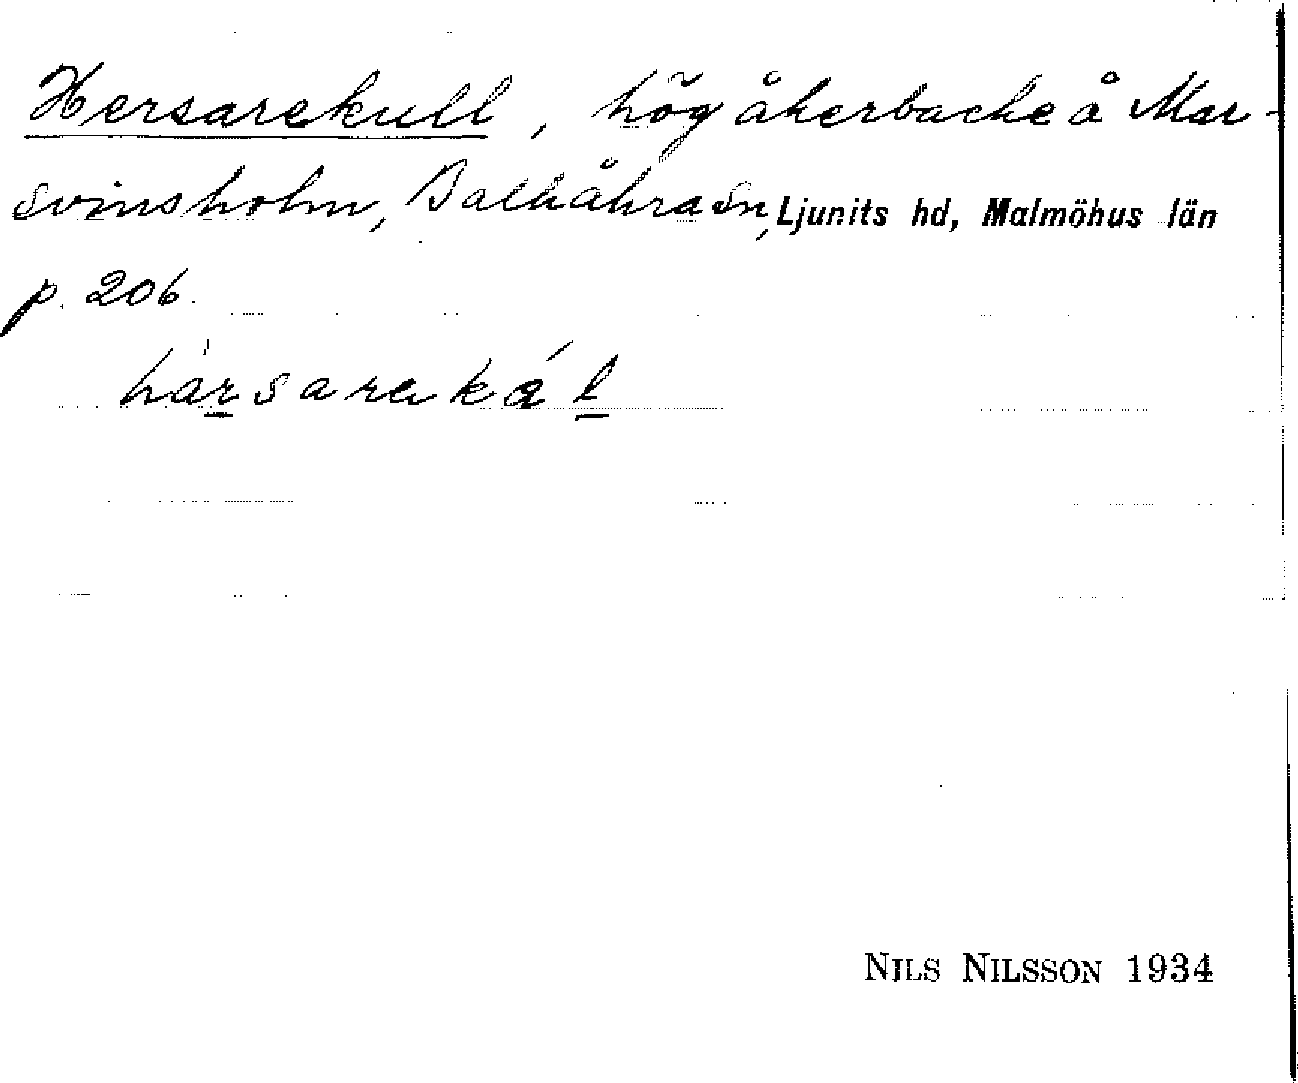 Hersarekull, hög åkerbacke å Mar-
svinsholm, Balkåkra sn, Ljunits hd, Malmöhus län
p. 206.
NILS NILSSON 1934